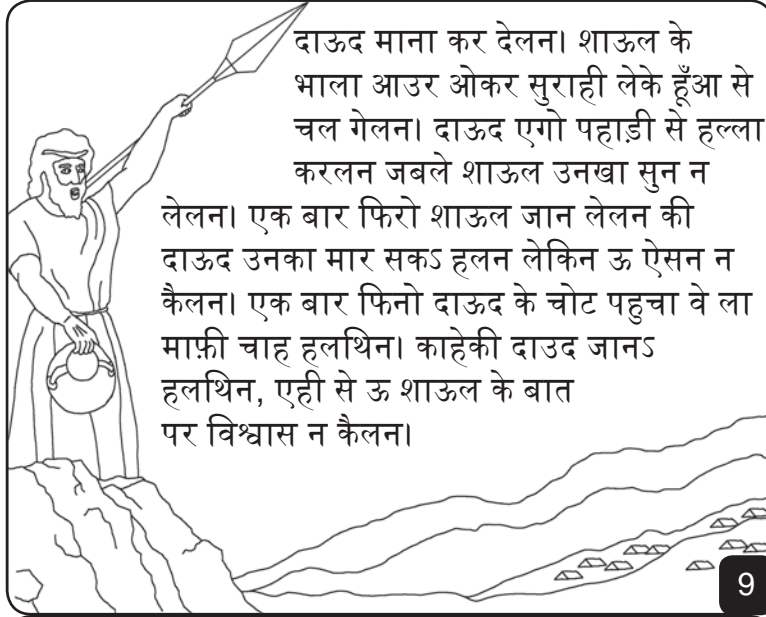 दाऊद माना कर देलन। शाऊल के
भाला आउर ओकर सुराही लेके हूँआ से
चल गेलन। दाऊद एगो पहाड़ी से हल्ला
करलन जबले शाऊल उनखा सुन न
लेलन। एक बार फिरो शाऊल जान लेलन की
दाऊद उनका मार सकऽ हलन लेकिन ऊ ऐसन न
कैलन। एक बार फिनो दाऊद के चोट पहुचा वे ला
माफ़ी चाह हलथिन। काहेकी दाउद जानऽ
हलथिन, एही से ऊ शाऊल के बात
पर विश्वास न कैलन।
9